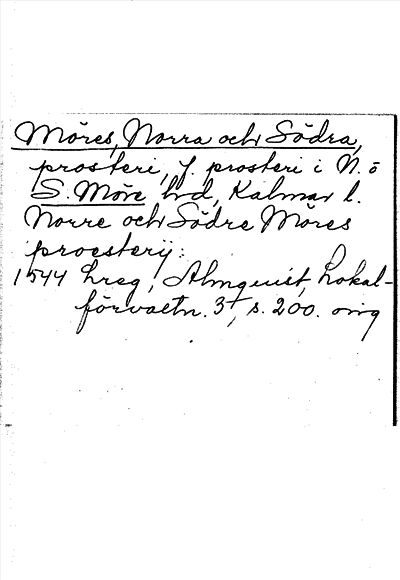 Möres, Norra och Södra,
prosteri, f. prosteri i N. o
S. Möre hd, Kalmar l.
Norre och Södre Möres
proesterij:
1544 hreg, Almquist, Lokal-
förvaltn. 3, s. 200. orig